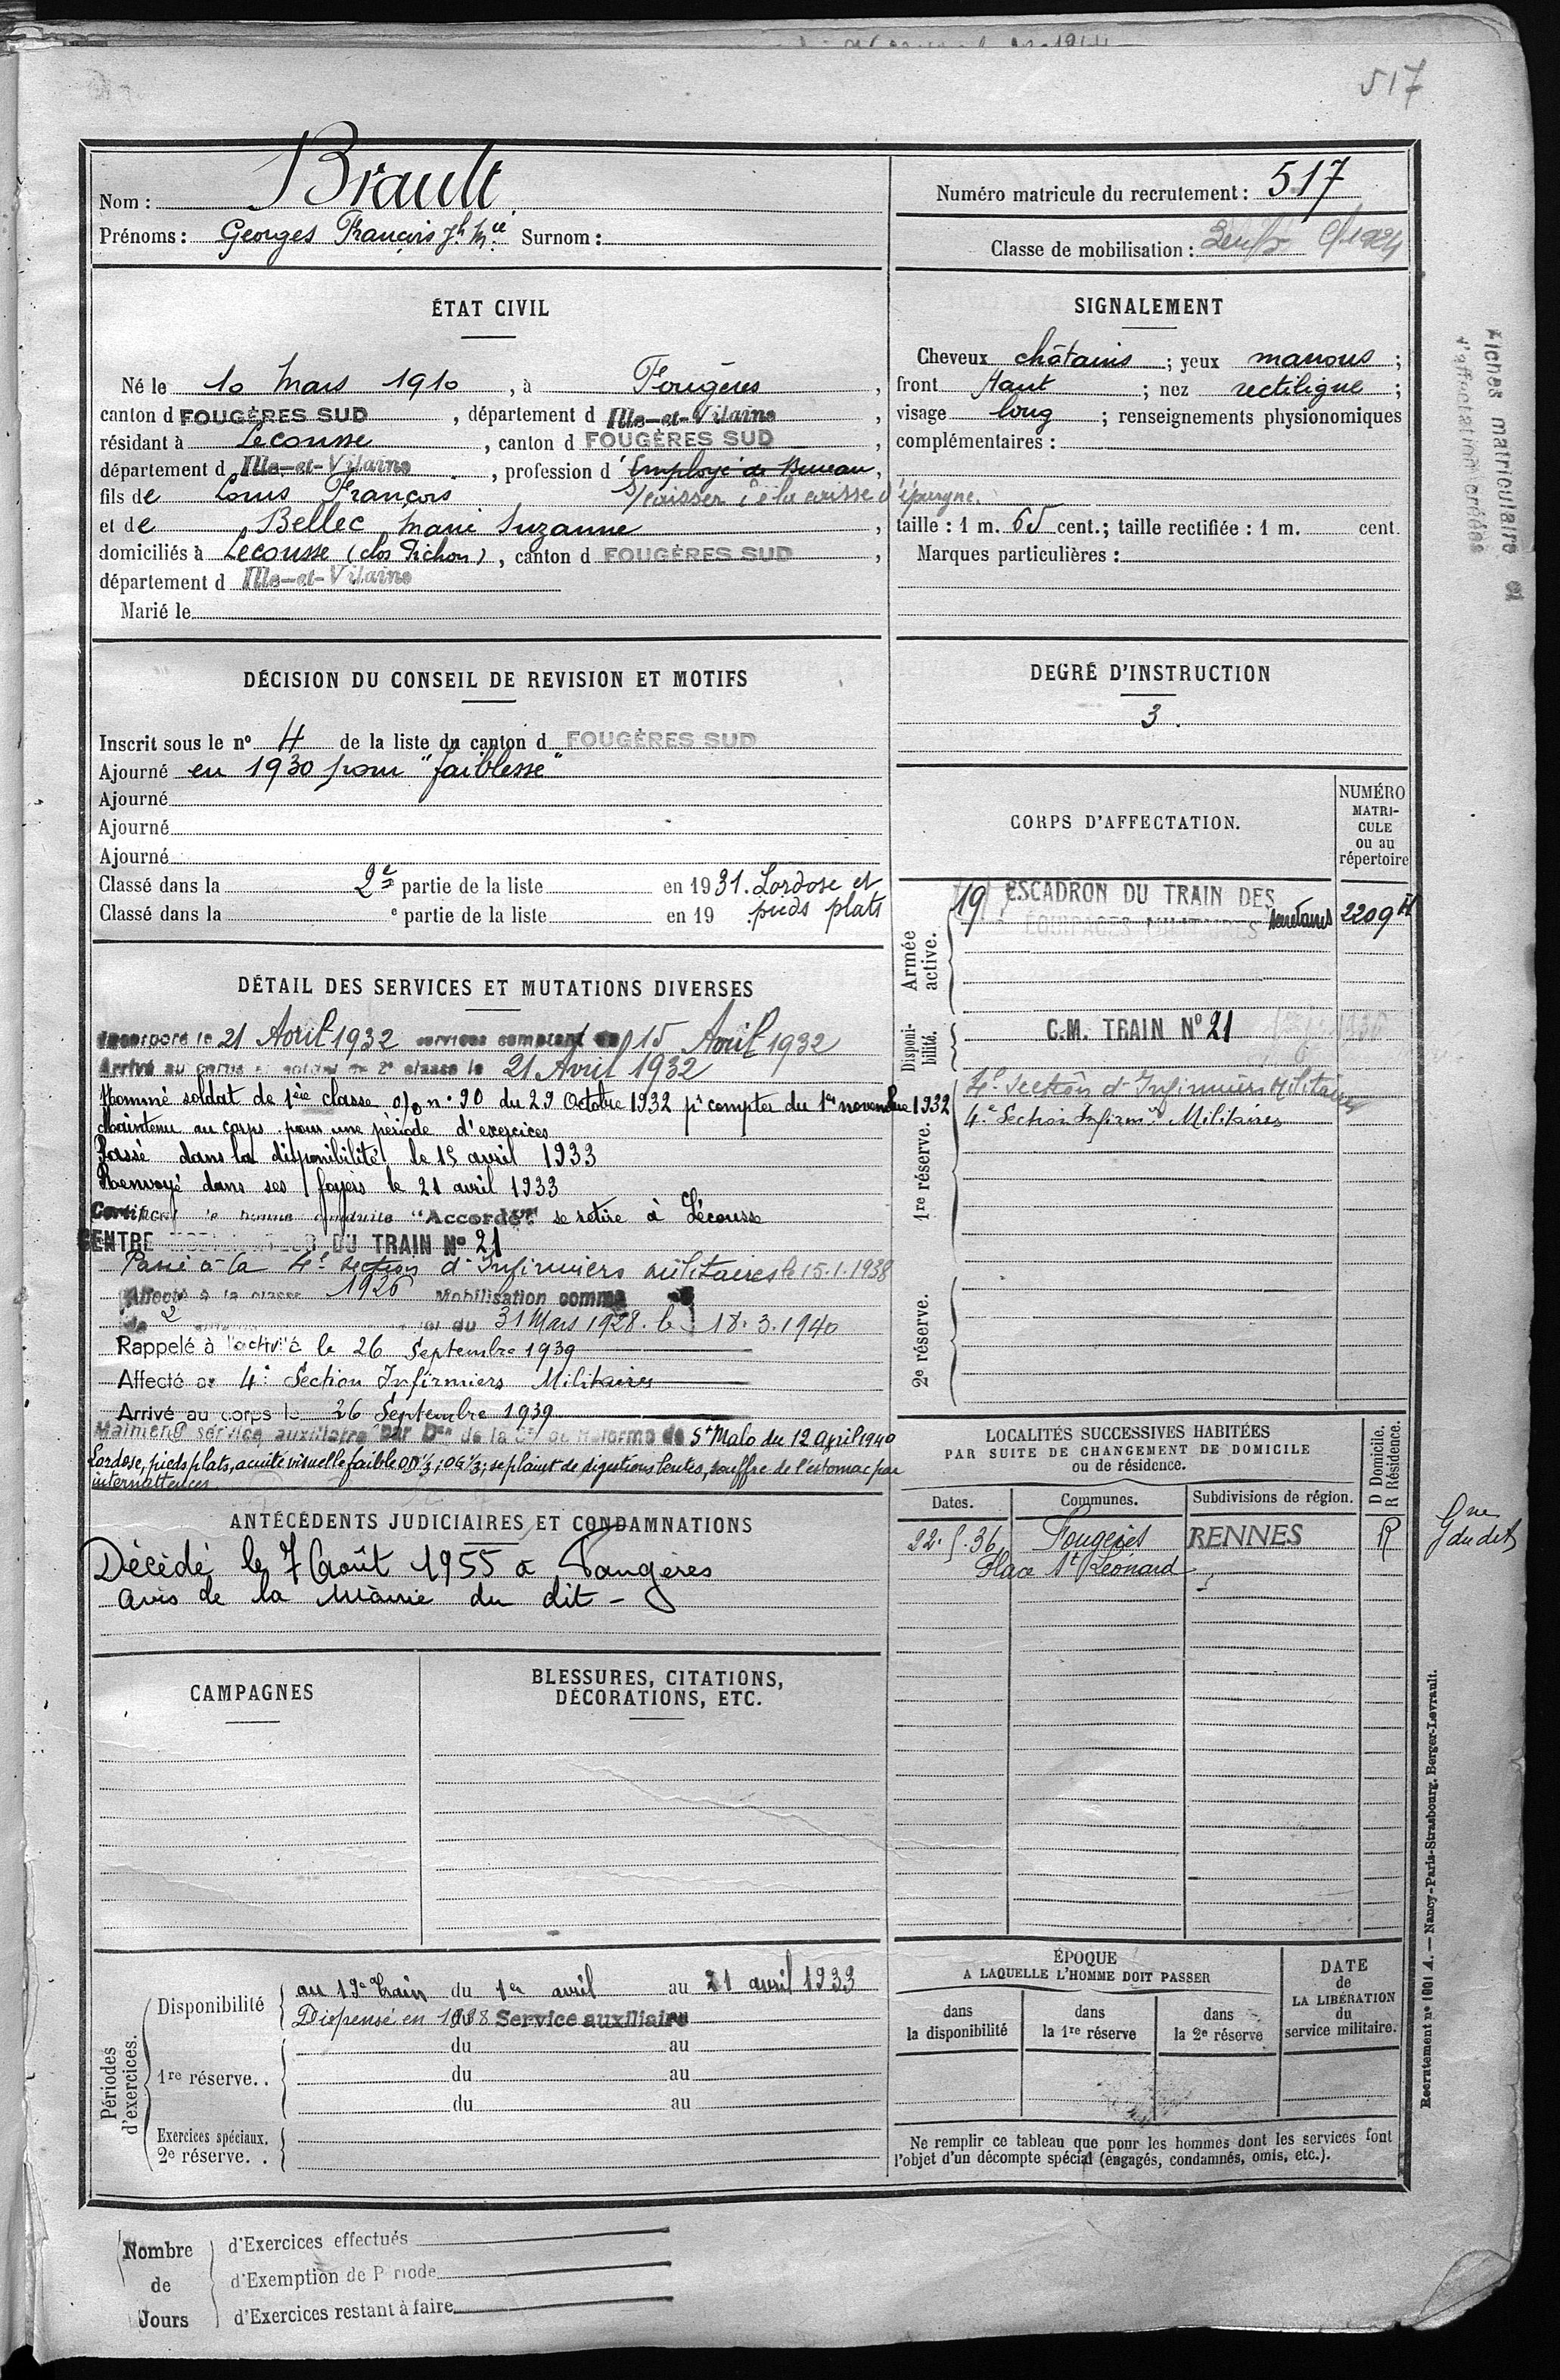 517
Nom : Brault
Prénoms : Georges François Jh Mie Surnom :
Numéro matricule du recrutement : 517
Classe de mobilisation : 1924
ÉTAT CIVIL
Né le 10 Mars 1910, à Fougères,
canton d FOUGÈRES SUD, département d Ille-et-Vilaine,
résidant à Lecousse, canton d FOUGÈRES SUD,
département d Ille-et-Vilaine, profession d' Employé de Bureau,
fils de Louis François
à la caisse d'épargne.
et de Bellec Marie Suzanne,
domiciliés à Lecousse (clos Pichon), canton d FOUGÈRES SUD,
département d Ille-et-Vilaine
Marié le
SIGNALEMENT
Cheveux châtains ; yeux marrons ;
front Haut ; nez rectiligne ;
visage long ; renseignements physionomiques
complémentaires :
taille : 1 m. 65 cent.; taille rectifiée : 1 m. cent.
Marques particulières :
Fiches matriculaire et
d'affectation créées
DÉCISION DU CONSEIL DE REVISION ET MOTIFS
Inscrit sous le nº 4 de la liste du canton d FOUGÈRES SUD
Ajourné en 1930 pour "faiblesse"
Ajourné
Ajourné
Ajourné
Classé dans la 2e partie de la liste en 1931. Lordose et
Classé dans la e partie de la liste en 19 pieds plats
DEGRÉ D'INSTRUCTION
3.
CORPS D'AFFECTATION.
NUMÉRO
MATRI-
CULE
ou au
répertoire
Armée active.
19 ESCADRON DU TRAIN DES
ÉQUIPAGES MILITAIRES 2209
Disponi-bilité.
C.M. TRAIN Nº 21
1re réserve.
4e Section d'Infirmiers Militaires
4e Section Infirm. Militaires
2e réserve.
DÉTAIL DES SERVICES ET MUTATIONS DIVERSES
Incorporé le 21 Avril 1932 services comptant du 15 Avril 1932
Arrivé au corps et soldat de 2e classe le 21 Avril 1932
Nommé soldat de 1ère classe o/o nº 90 du 29 Octobre 1932 pr compter du 1er novembre 1932
Maintenu au corps pour une période d'exercices
Passé dans la disponibilité le 15 avril 1933
Renvoyé dans ses foyers le 21 avril 1933
Certificat de bonne conduite "Accordé" se retire à Lécousse
CENTRE MOBILISATEUR DU TRAIN Nº 21
Passé à la 4e Section d'Infirmiers militaires le 15.1.1938
Affecté à la classe 1926 Mobilisation comme
de 2 loi du 31 Mars 1928. le 18.3.1940
Rappelé à l'activité le 26 Septembre 1939
Affecté à 4e Section Infirmiers Militaires
Arrivé au corps le 26 Septembre 1939
Maintenu service auxiliaire par Don de la Con de Réforme de St Malo du 12 April 1940
Lordose, pieds plats, acuité visuelle faible OD 1/3; OG 1/3; se plaint de digestions lentes, souffre de l'estomac par
intermittences.
ANTÉCÉDENTS JUDICIAIRES ET CONDAMNATIONS
Décédé le 7 Août 1955 à Fougères
avis de la Mairie du dit -
LOCALITÉS SUCCESSIVES HABITÉES
PAR SUITE DE CHANGEMENT DE DOMICILE
ou de résidence.
D Domicile.
R Résidence.
Dates. Communes. Subdivisions de région.
22.5.36 Fougères RENNES R
Place St Léonard
CAMPAGNES
BLESSURES, CITATIONS,
DÉCORATIONS, ETC.
Périodes d'exercices.
Disponibilité au 19e Train du 1er avril au 21 avril 1933
Dispensé en 1938 du Service auxiliaire
du au
1re réserve. . du au
du au
Exercices spéciaux.
2e réserve. .
ÉPOQUE
A LAQUELLE L'HOMME DOIT PASSER
dans la disponibilité
dans la 1re réserve
dans la 2e réserve
DATE
de
LA LIBÉRATION
du
service militaire.
Ne remplir ce tableau que pour les hommes dont les services font
l'objet d'un décompte spécial (engagés, condamnés, omis, etc.).
Recrutement nº 1001 A. — Nancy-Paris-Strasbourg, Berger-Levrault.
Nombre de Jours
d'Exercices effectués
d'Exemption de Période
d'Exercices restant à faire